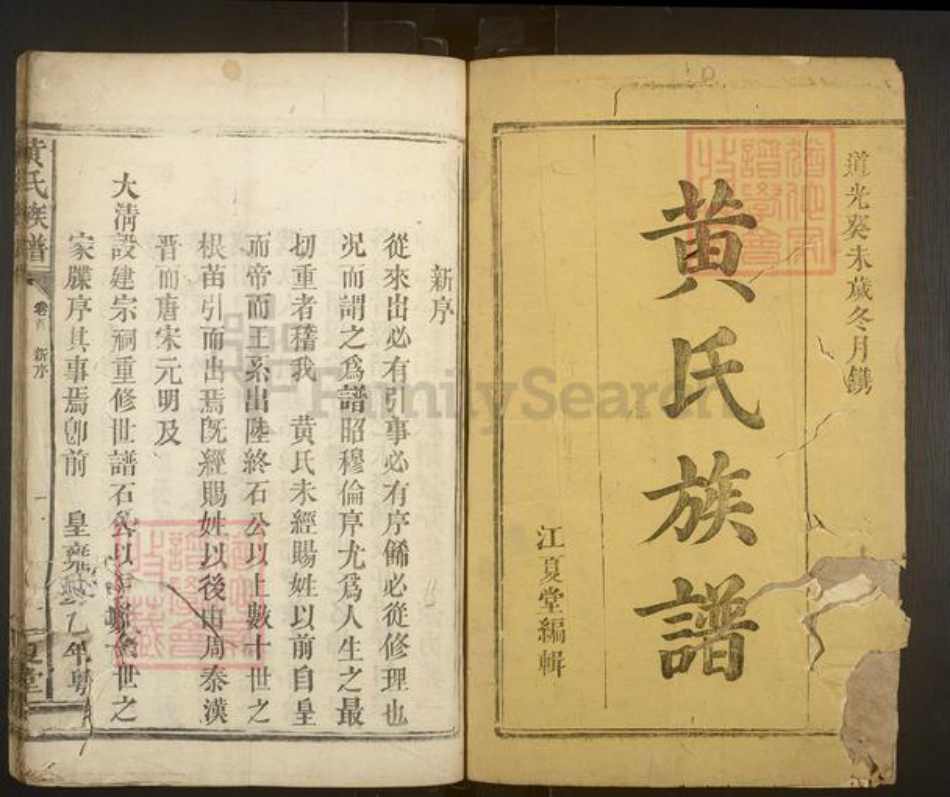 道光癸未歲冬月鐫
黃氏族譜
江夏堂編輯
新序
從來出必有引事必有序飾必從修理也
況而謂之爲譜昭穆倫序尤爲人生之最
切重者稽我 黃氏未經賜姓以前自皇
而帝而王系出陸終石公以上數十世之
根苗引而出焉旣經賜姓以後由周秦漢
晉而唐宋元明及
大清設建宗祠重修世譜石公以 世之
家牒序其事焉卽前 皇 乙年
黃氏族譜 卷首 新序 一 夏堂
FamilySearch